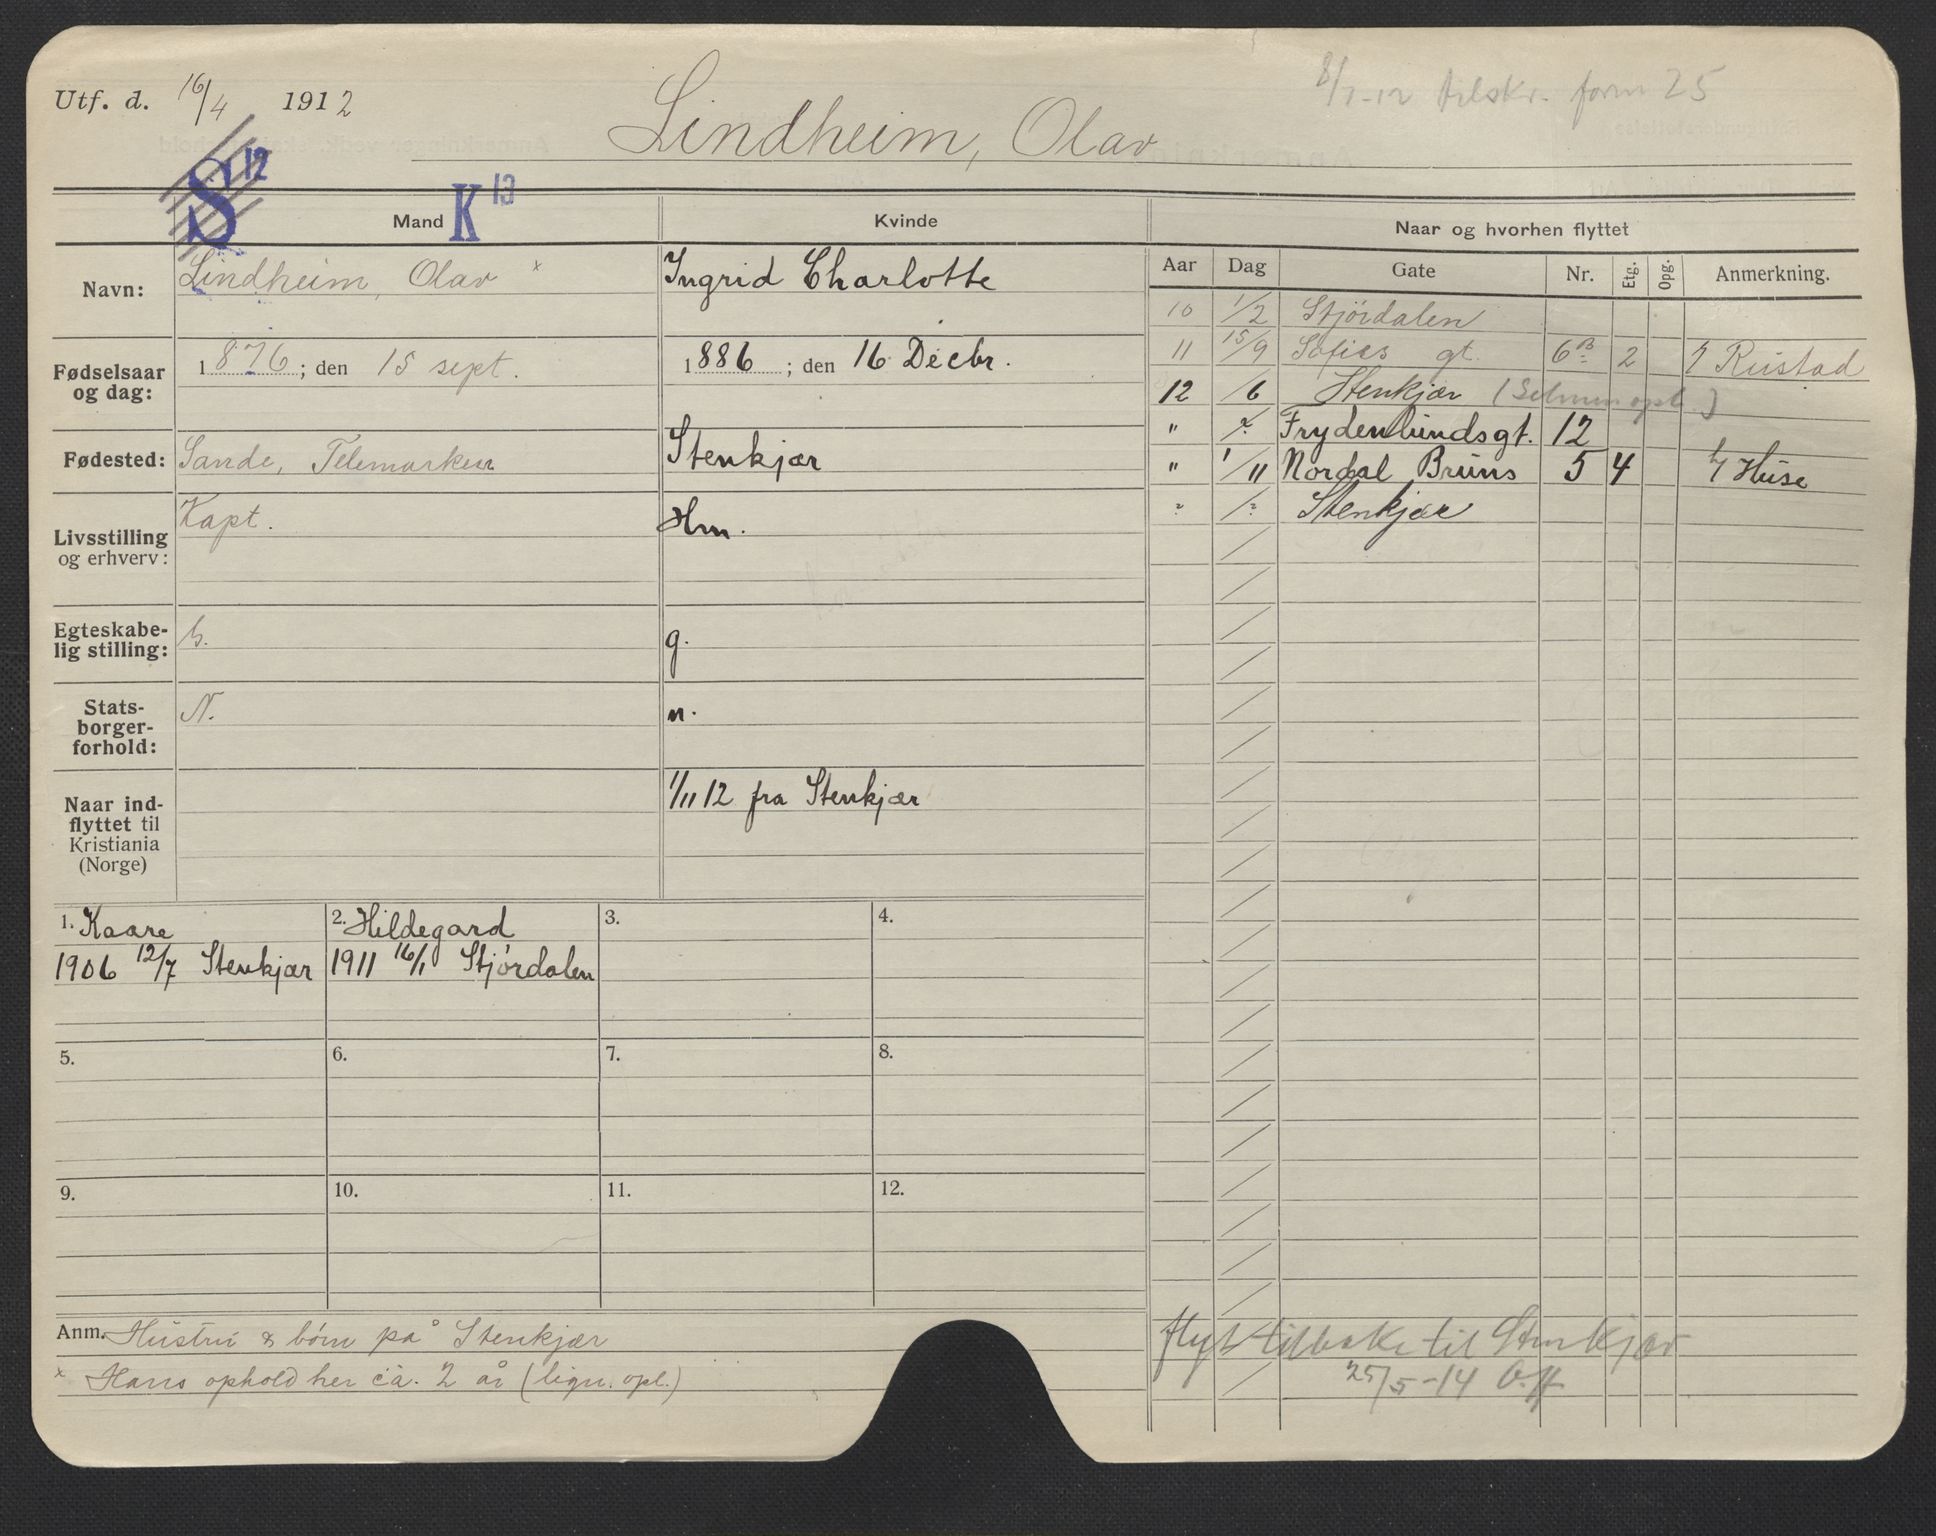 Utf. d. 16/4 1912
Lindheim, Olav
8/7-12 tilskr. form 25
S 12
K 13
Mand
Kvinde
Naar og hvorhen flyttet
Navn: Lindheim, Olav x
Ingrid Charlotte
Fødselsaar og dag: 1876; den 15 sept.
1886; den 16 Decbr.
Fødested: Sande, Telemarken
Stenkjær
Livsstilling og erhverv: Kapt.
Hm.
Egteskabelig stilling: G.
g.
Statsborgerforhold: N.
n.
Naar indflyttet til Kristiania (Norge)
1/11 12 fra Stenkjær
Aar Dag Gate Nr. Etg. Opg. Anmerkning.
10 1/2 Stjördalen
11 15/9 Sofies gt. 6B 2 Rustad
12 /6 Stenkjær
" Frydenlundsgt. 12
" 1/11 Nordal Bruns 5 4 h/ Huse
? /? Stenkjær
1. Kaare
1906 12/7 Stenkjær
2. Hildegard
1911 16/1 Stjördalen
3.
4.
5.
6.
7.
8.
9.
10.
11.
12.
Anm. Hustru & börn på Stenkjær
x Hans ophold her ca. 2 år (lign. opl.)
flyt tilbake til Stenkjær
25/5-14